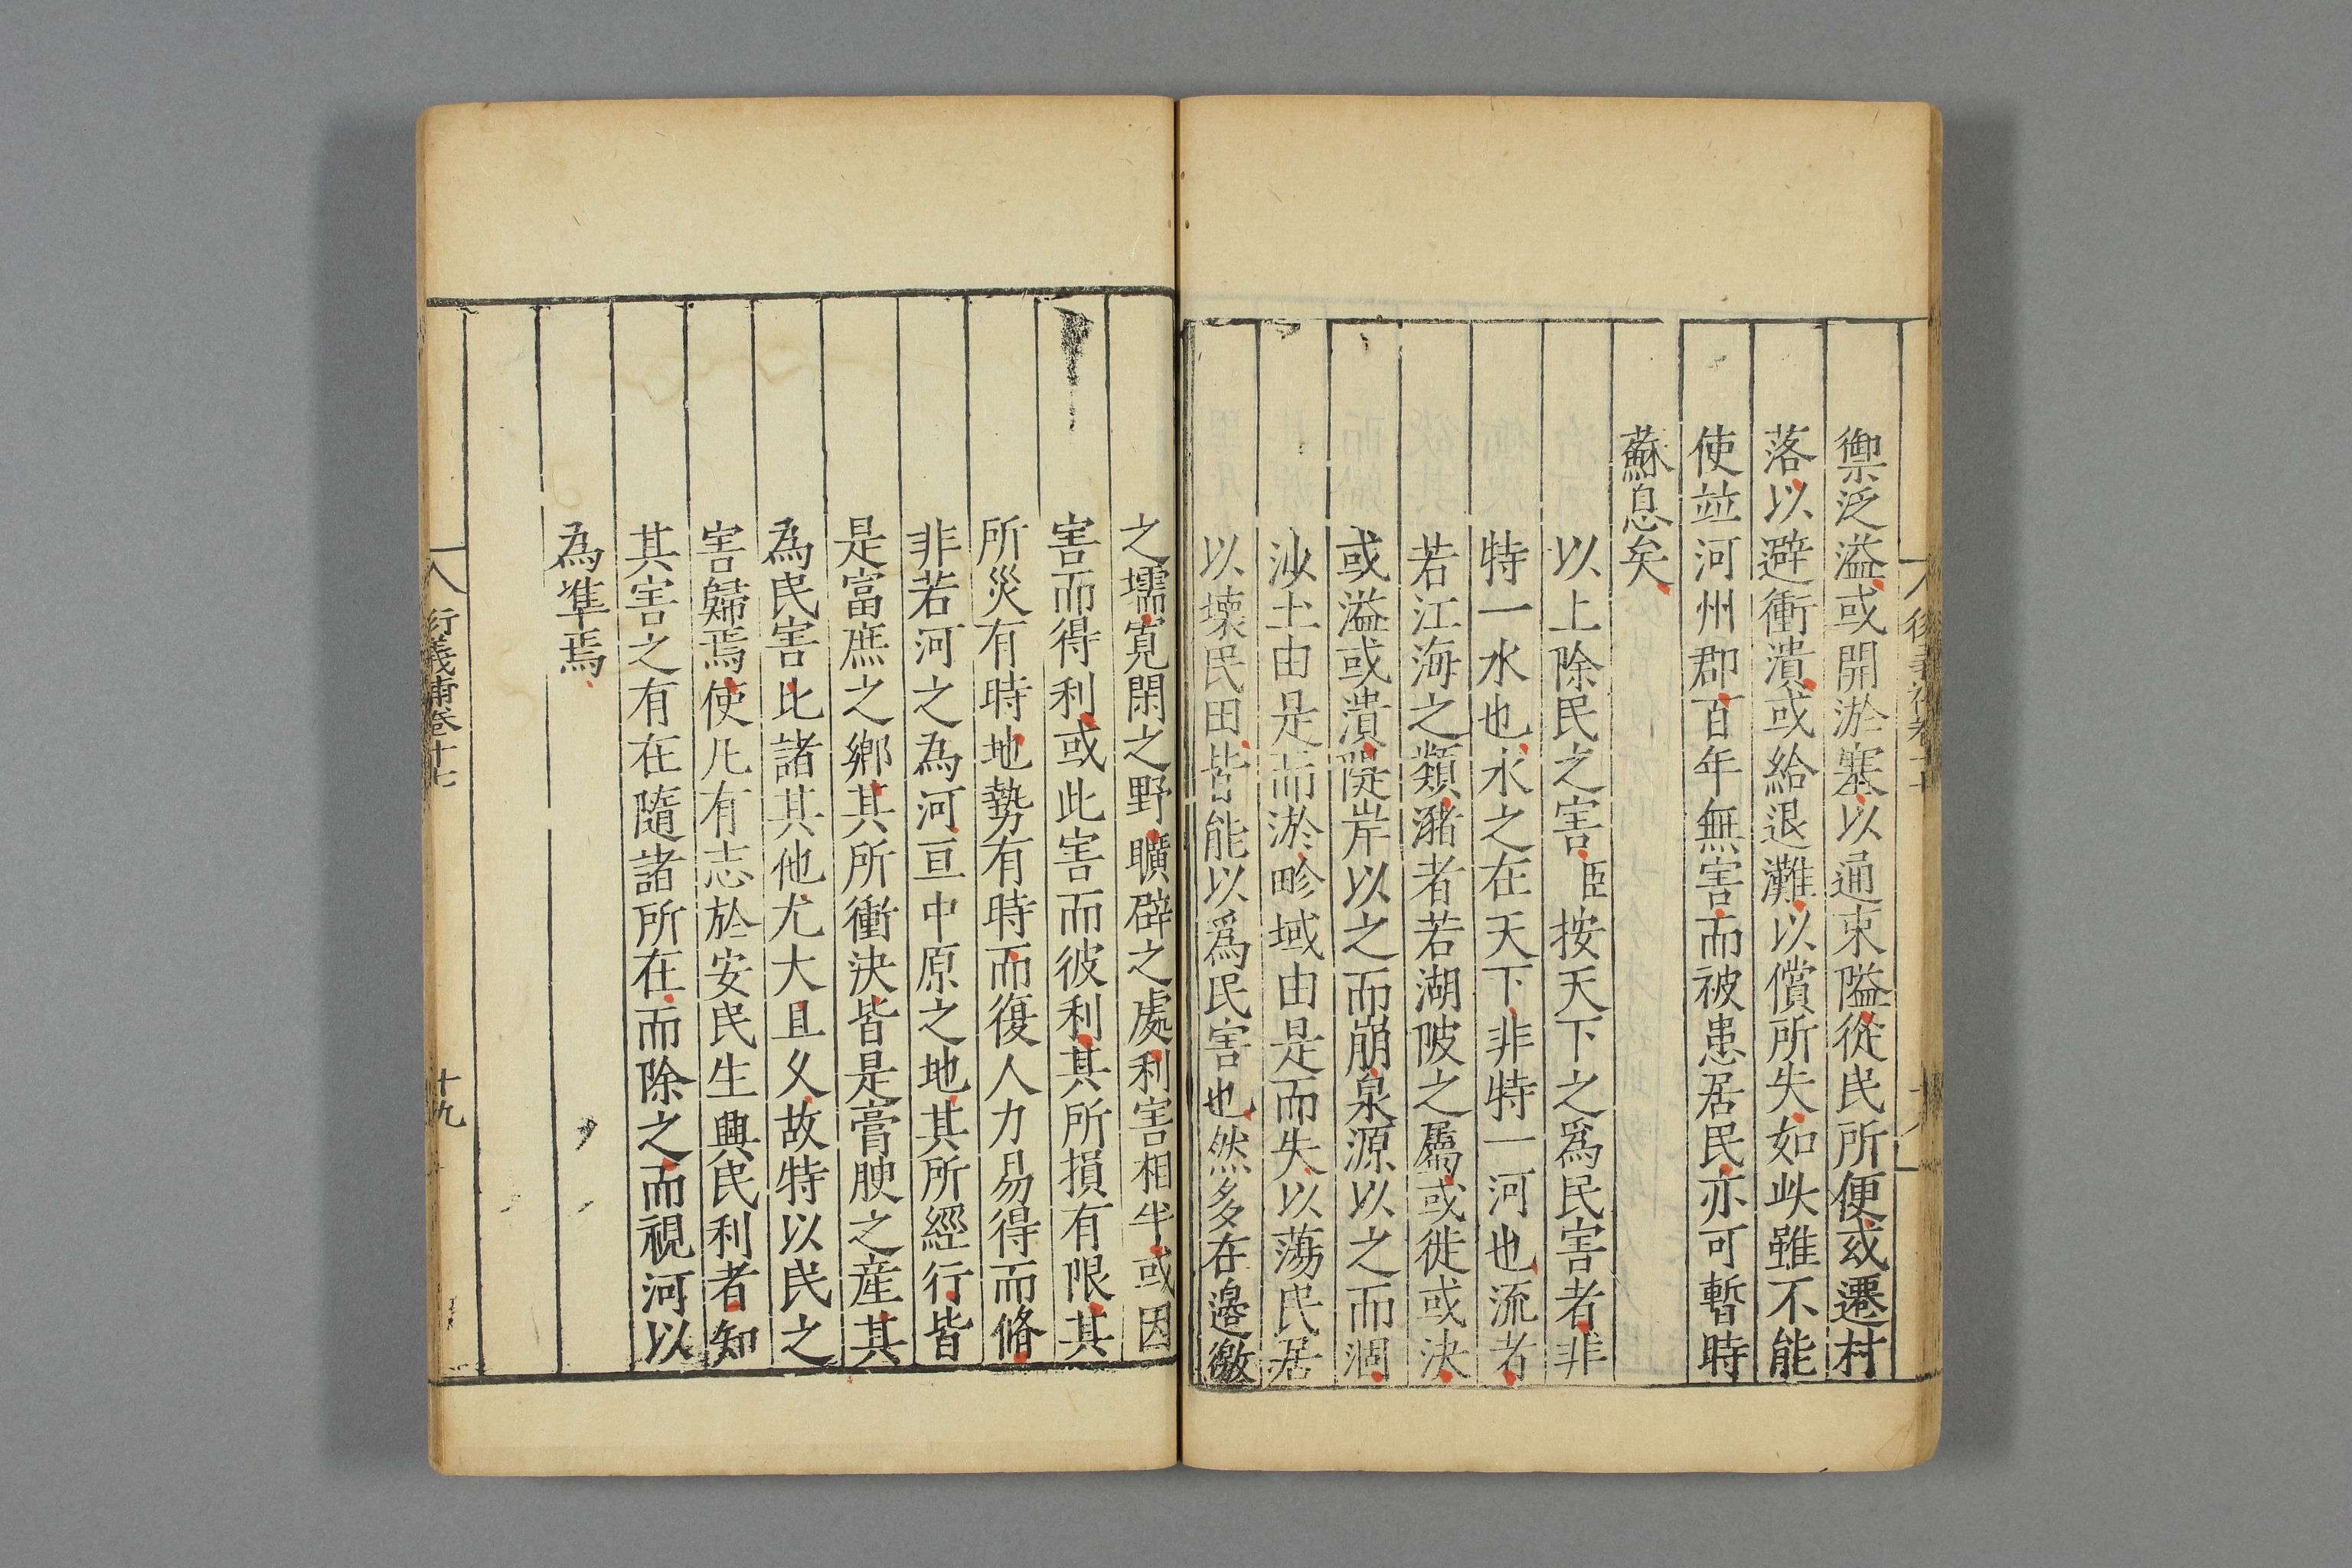 禦泛溢或開淤塞以通束隘從民所便或遷村
落以避衝潰或給退灘以償所失如此雖不能
使並河州郡百年無害而被患居民亦可暫時
蘇息矣
以上除民之害臣按天下之爲民害者非
特一水也水之在天下非特一河也流者
若江海之類瀦者若湖陂之屬或徙或決
或溢或潰隄岸以之而崩泉源以之而涸
沙土由是而淤畛域由是而失以蕩民居
以壊民田皆能以爲民害也然多在邉徼
之壖寛閑之野曠辟之處利害相半或因
害而得利或此害而彼利其所損有限其
所災有時地勢有時而復人力易得而脩
非若河之為河亘中原之地其所經行皆
是富庶之鄉其所衝決皆是膏腴之産其
為民害比諸其他尤大且久故特以民之
害歸焉使凡有志於安民生興民利者知
其害之有在隨諸所在而除之而視河以
為準焉
衍義補卷十七
十九